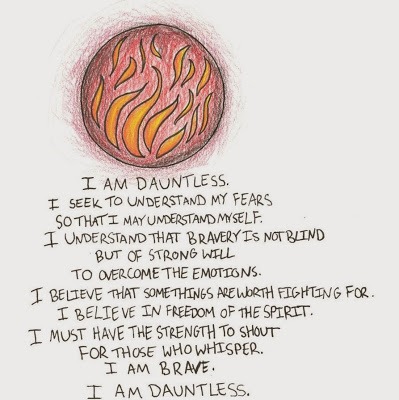 I AM DAUNTLESS.
I SEEK TO UNDERSTAND MY FEARS
SO THAT I MAY UNDERSTAND MYSELF.
I UNDERSTAND THAT BRAVERY IS NOT BLIND
BUT OF STRONG WILL
TO OVERCOME THE EMOTIONS.
I BELIEVE THAT SOMETHINGS ARE WORTH FIGHTING FOR.
I BELIEVE IN FREEDOM OF THE SPIRIT.
I MUST HAVE THE STRENGTH TO SHOUT
FOR THOSE WHO WHISPER.
I AM BRAVE.
I AM DAUNTLESS.